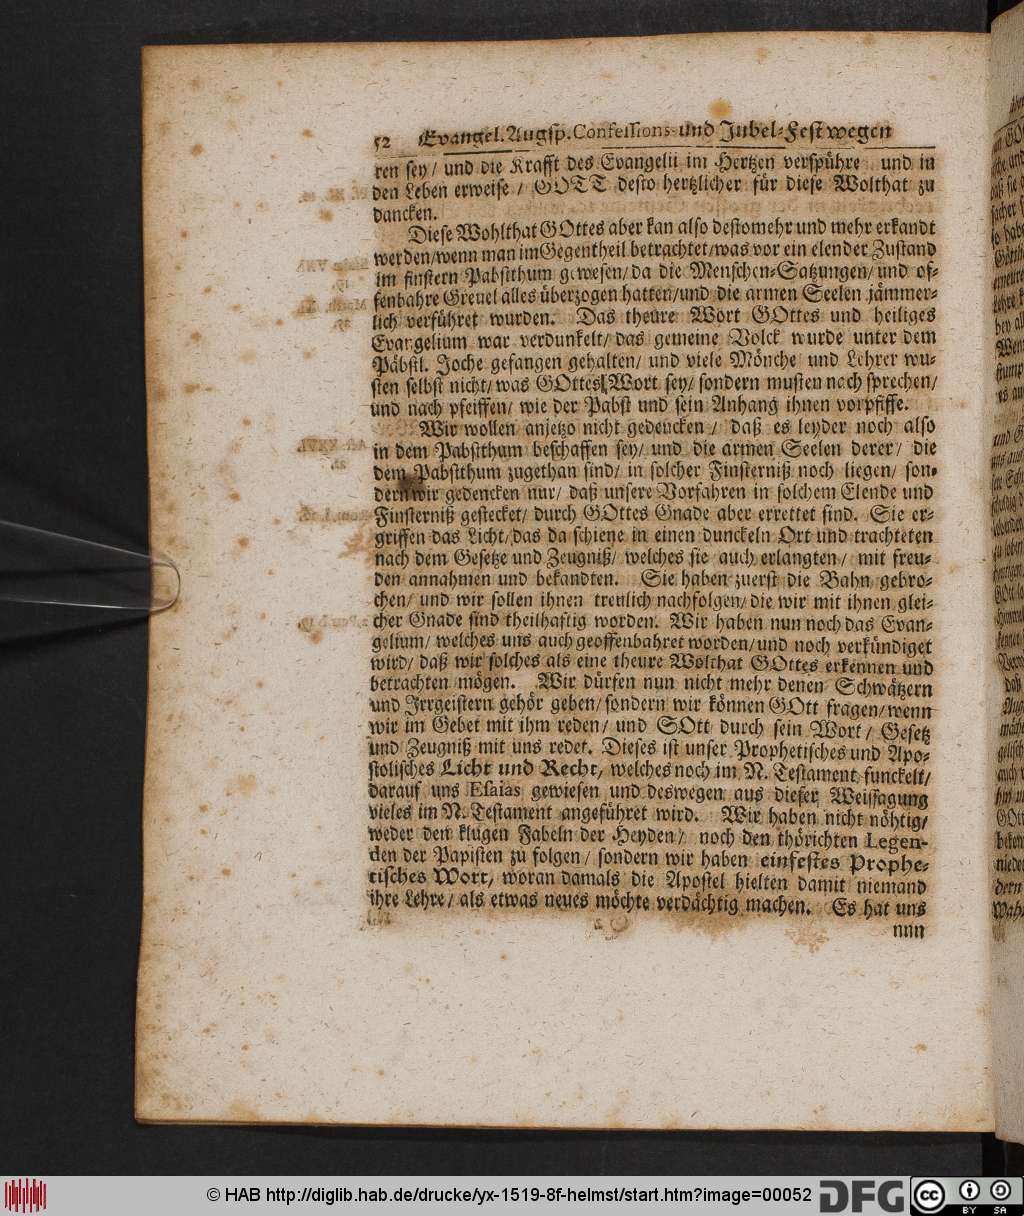 52 Evangel. Augsp. Confessions- und Jubel-Fest wegen
ren sey/ und die Krafft des Evangelii im Hertzen verspühre und in
den Leben erweise/ GOTT desto hertzlicher für diese Wolthat zu
dancken.
Diese Wohlthat GOttes aber kan also destomehr und mehr erkandt
werden/wenn man im Gegentheil betrachtet/was vor ein elender Zustand
im finstern Pabstthum gewesen/ da die Menschen-Satzungen/ und of-
fenbahre Greuel alles überzogen hatten/und die armen Seelen jämmer-
lich verführet wurden. Das theure Wort GOttes und heiliges
Evangelium war verdunkelt/ das gemeine Volck wurde unter dem
Päbstl. Joche gefangen gehalten/ und viele Mönche und Lehrer wu-
sten selbst nicht/ was GOttes Wort sey/ sondern musten nach sprechen/
und nach pfeiffen/ wie der Pabst und sein Anhang ihnen vorpfiffe.
Wir wollen anjetzo nicht gedencken/ daß es leyder noch also
in dem Pabstthum beschaffen sey/ und die armen Seelen derer/ die
dem Pabstthum zugethan sind/ in solcher Finsterniß noch liegen/ son-
dern wir gedencken nur/ daß unsere Vorfahren in solchem Elende und
Finsterniß gestecket/ durch GOttes Gnade aber errettet sind. Sie er-
griffen das Licht/ das da schiene in einen dunckeln Ort und trachteten
nach dem Gesetze und Zeugniß/ welches sie auch erlangten/ mit freu-
den annahmen und bekandten. Sie haben zuerst die Bahn gebro-
chen/ und wir sollen ihnen treulich nachfolgen/ die wir mit ihnen glei-
cher Gnade sind theilhaftig worden. Wir haben nun noch das Evan-
gelium/ welches uns auch geoffenbahret worden/ und noch verkündiget
wird/ daß wir solches als eine theure Wolthat GOttes erkennen und
betrachten mögen. Wir dürfen nun nicht mehr denen Schwätzern
und Irrgeistern gehör geben/ sondern wir können GOtt fragen/ wenn
wir im Gebet mit ihm reden/ und GOtt durch sein Wort/ Gesetz
und Zeugniß mit uns redet. Dieses ist unser Prophetisches und Apo-
stolisches Licht und Recht, welches noch im N. Testament funckelt/
darauf uns Esaias gewiesen und deswegen aus dieser Weissagung
vieles im N. Testament angeführet wird. Wir haben nicht nöhtig/
weder den klugen Fabeln der Heyden/ noch den thörichten Legen-
den der Papisten zu folgen/ sondern wir haben ein festes Prophe-
tisches Wort, woran damals die Apostel hielten damit niemand
ihre Lehre/ als etwas neues möchte verdächtig machen. Es hat uns
nun
© HAB http://diglib.hab.de/drucke/yx-1519-8f-helmst/start.htm?image=00052
DFG
cc BY SA